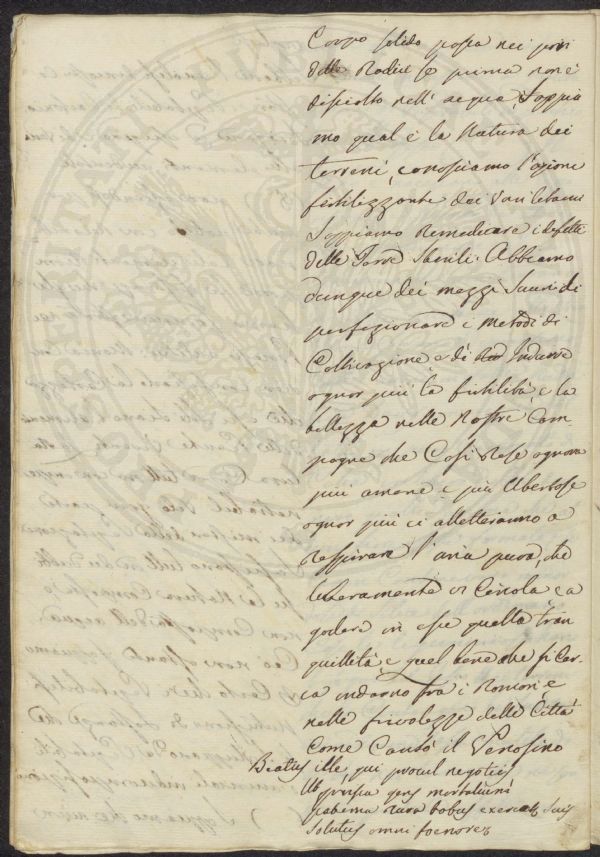 Corpo solido possa nei pori
delle Radici se prima non è
disciolto nell' acqua, Soppia
mo qual è la Natura dei
terreni, conosciamo l'azione
fertilizzante dei Vari letami
Soppiamo Remedicare i difetti
delle Terre Sterili. Abbiamo
dunque dei mezzi Sicuri di
perfezionare i metodi di
Coltivazione e di Indurre
ognor più la fertilità e la
bellezza nelle Nostre Cam
pagne che Così Rese ognora
più amene e più Ubertose
ognor più ci alletteranno a
Respirare l'aria pura, che
liberamente vi Circola e a
godere in esse quella tran
quillità e quel bene che si Cer-
ca indarno fra i Romori e
nelle frivolezze delle Città
Come Cantò il Venosino
Beatus ille, qui procul negotiis
Ut prisca gens mortalium
paterna rura bobus exercet Suis
Solutus omni foenore